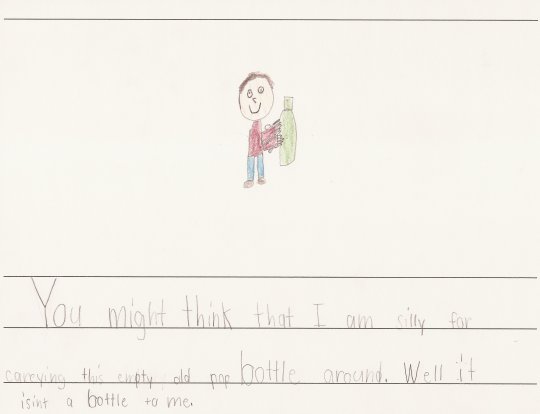 You might think that I am silly for
carrying this empty old pop bottle around. Well it
isint a bottle to me.